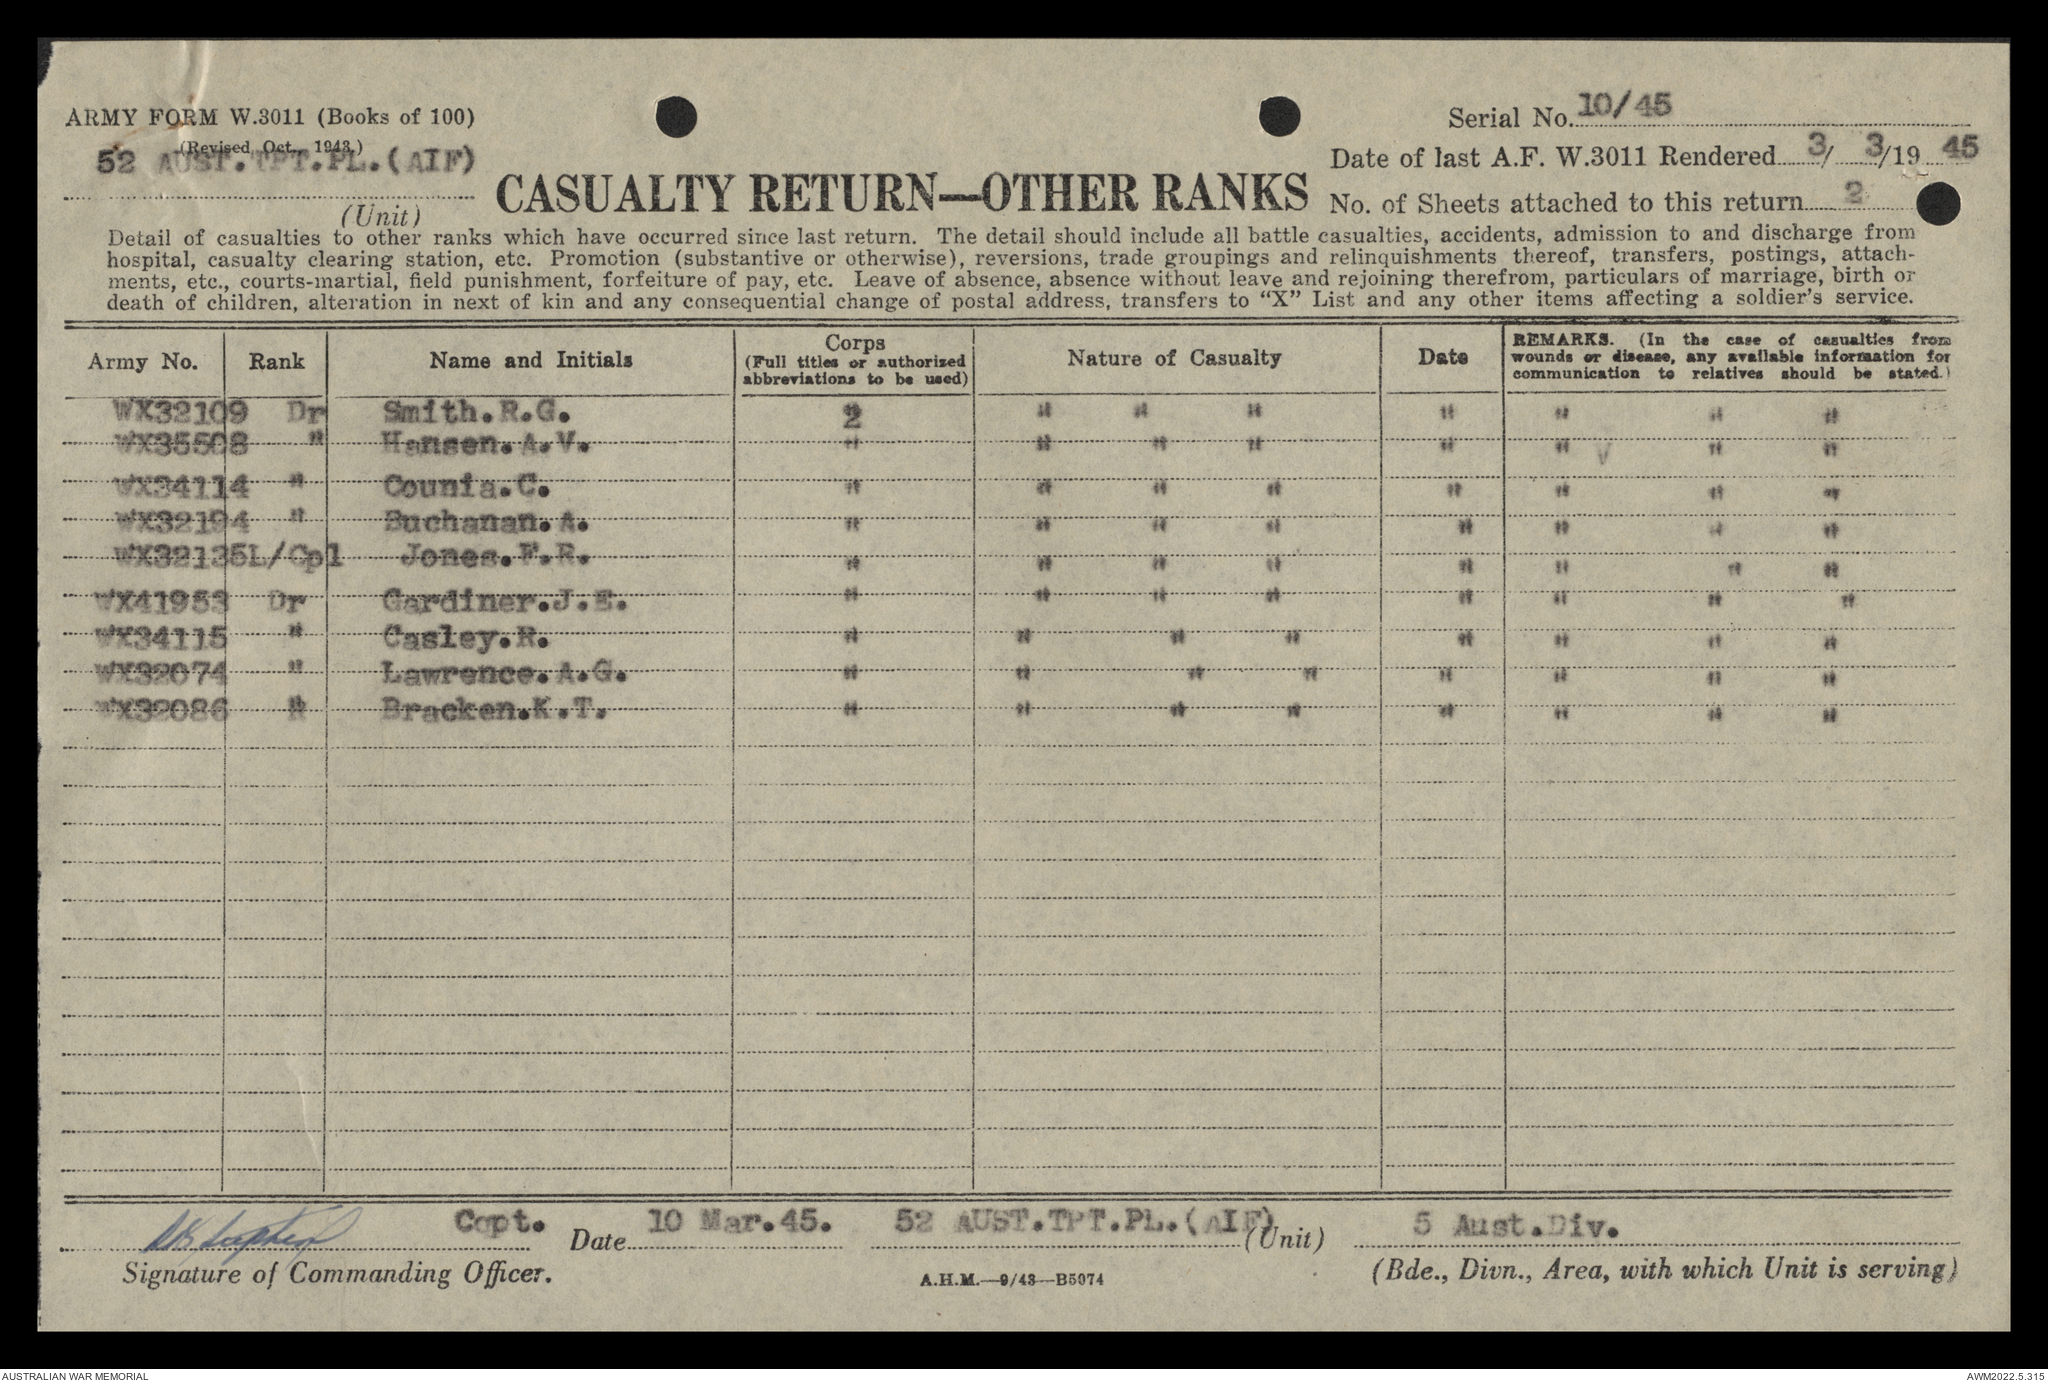 ARMY FORM W.3011 (Books of 100)
(Revised Oct., 1943.)
52 AUST.TPT.PL.(AIF)
(Unit)
CASUALTY RETURN—OTHER RANKS
Serial No. 10/45
Date of last A.F. W.3011 Rendered 3/ 3/19 45
No. of Sheets attached to this return 2
Detail of casualties to other ranks which have occurred since last return. The detail should include all battle casualties, accidents, admission to and discharge from
hospital, casualty clearing station, etc. Promotion (substantive or otherwise), reversions, trade groupings and relinquishments thereof, transfers, postings, attach-
ments, etc., courts-martial, field punishment, forfeiture of pay, etc. Leave of absence, absence without leave and rejoining therefrom, particulars of marriage, birth or
death of children, alteration in next of kin and any consequential change of postal address, transfers to “X” List and any other items affecting a soldier’s service.
Army No. Rank Name and Initials Corps (Full titles or authorized abbreviations to be used) Nature of Casualty Date REMARKS. (In the case of casualties from wounds or disease, any available information for communication to relatives should be stated.)
WX32109 Dr Smith.R.G. " " " " " " " "
WX35508 " Hansen.A.V. " " " " " " V " "
WX34114 " Counia.C. " " " " " " " "
WX32194 " Buchanan.A. " " " " " " " "
WX32135 L/Cpl Jones.F.R. " " " " " " " "
WX41953 Dr Gardiner.J.E. " " " " " " " "
WX34115 " Casley.R. " " " " " " " "
WX32074 " Lawrence.A.G. " " " " " " " "
WX32086 " Bracken.K.T. " " " " " " " "
Capt. Date 10 Mar.45. 52 AUST.TPT.PL.(AIF) (Unit) 5 Aust.Div.
Signature of Commanding Officer.
A.H.M.—9/43—B5974
(Bde., Divn., Area, with which Unit is serving)
AUSTRALIAN WAR MEMORIAL
AWM2022.5.315